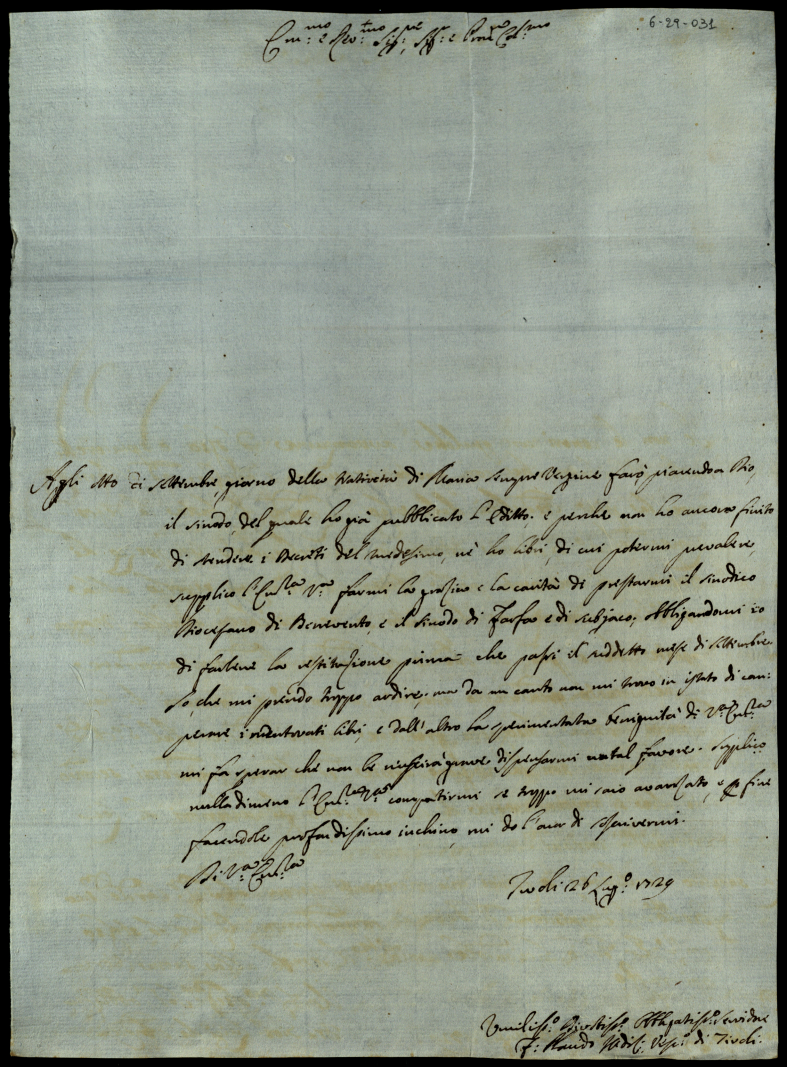 6-29-031
Em:mo e Rev:mo Sig:re, Sig:r e Pron:e Col:mo
Agli otto di settembre, giorno della Natività di Maria sempre Vergine farò piacendo a Dio,
il sinodo, del quale ho già pubblicato l'Editto. e perche non ho ancora finito
di stendere i Decreti del medesimo, nè ho libri, di cui potermi prevalere,
supplico l'Em:za V:ra farmi la grazia e la carità di prestarmi il sinodico
Diocesano di Benevento, e il sinodo di Farfa e di Subjaco; obbligandomi io
di farlene la restituzione prima che passi il suddetto mese di settembre
So, che mi prendo troppo ardire; ma da un canto non mi trovo in istato di com-
perare i mentovati libri, e dall'altro la sperimentata benignità di V:ra Em:za
mi fa sperar che non le riuscirà grave dispensarmi un tal favore. Supplico
nulladimeno l'Em:za V:ra compatirmi se troppo mi son avanzato, e per fine
facendole profondissimo inchino, mi do l'onor di sscrivermi.
Di V:ra Em:za
Tivoli 26 Lug:o 1729
Umiliss:o Divotiss:o Obbligatiss:o Servidore
F: Placido Vesc:o di Tivoli.